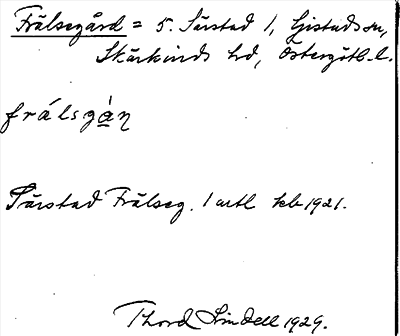 Frälsegård = 5. Särstad 1, Gistads sn,
Skärkinds hd, Östergötl. l.
frálsgȧ̱ṇ
Särstad Frälseg. 1 mtl keb 1921.
Thord Lindell 1929.